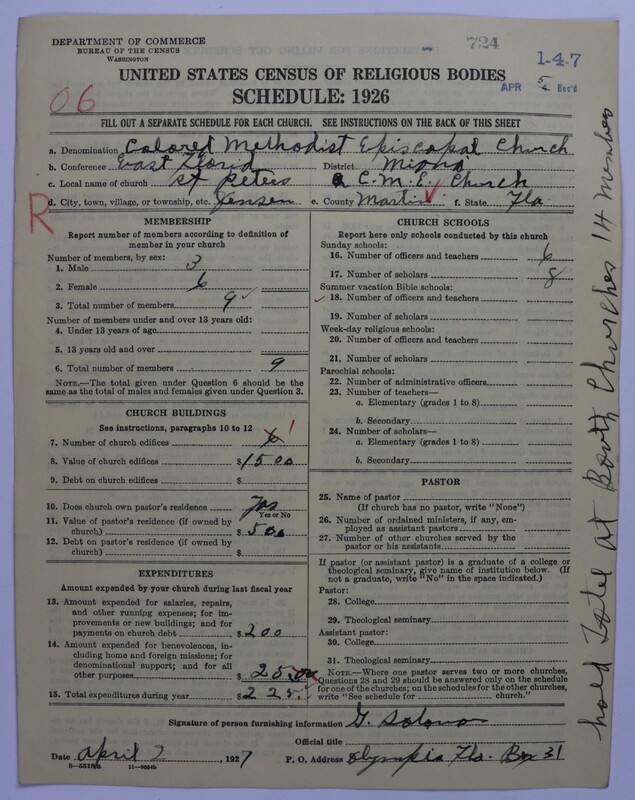 DEPARTMENT OF COMMERCE
BUREAU OF THE CENSUS
WASHINGTON
724
1-4-7
APR 5/4 Rec'd
UNITED STATES CENSUS OF RELIGIOUS BODIES
SCHEDULE: 1926
06
FILL OUT A SEPARATE SCHEDULE FOR EACH CHURCH. SEE INSTRUCTIONS ON THE BACK OF THIS SHEET
a. Denomination Colored Methodist Episcopal Church
b. Conference East Florid District Miami
c. Local name of church St Peters C. M. E. Church
R
d. City, town, village, or township, etc. Jensen e. County Martin f. State Fla.
MEMBERSHIP
Report number of members according to definition of
member in your church
Number of members, by sex:
1. Male 3
2. Female 6
3. Total number of members 9
Number of members under and over 13 years old:
4. Under 13 years of age
5. 13 years old and over
6. Total number of members 9
NOTE.—The total given under Question 6 should be
the same as the total of males and females given under Question 3.
CHURCH BUILDINGS
See instructions, paragraphs 10 to 12
7. Number of church edifices 6 1
8. Value of church edifices $1500
9. Debt on church edifices $
10. Does church own pastor's residence Yas
Yes or No
11. Value of pastor's residence (if owned by
church) $500
12. Debt on pastor's residence (if owned by
church) $
EXPENDITURES
Amount expended by your church during last fiscal year
13. Amount expended for salaries, repairs,
and other running expenses; for im-
provements or new buildings; and for
payments on church debt $200
14. Amount expended for benevolences, in-
cluding home and foreign missions; for
denominational support; and for all
other purposes 25.00
15. Total expenditures during year $225.
CHURCH SCHOOLS
Report here only schools conducted by this church
Sunday schools:
16. Number of officers and teachers 6
17. Number of scholars 8
Summer vacation Bible schools:
18. Number of officers and teachers
19. Number of scholars
Week-day religious schools:
20. Number of officers and teachers
21. Number of scholars
Parochial schools:
22. Number of administrative officers
23. Number of teachers—
a. Elementary (grades 1 to 8)
b. Secondary
24. Number of scholars—
a. Elementary (grades 1 to 8)
b. Secondary
PASTOR
25. Name of pastor
(If church has no pastor, write "None")
26. Number of ordained ministers, if any, em-
ployed as assistant pastors
27. Number of other churches served by the
pastor or his assistants
If pastor (or assistant pastor) is a graduate of a college or
theological seminary, give name of institution below. (If
not a graduate, write "No" in the space indicated.)
Pastor:
28. College
29. Theological seminary
Assistant pastor:
30. College
31. Theological seminary
NOTE.—Where one pastor serves two or more churches,
Questions 28 and 29 should be answered only on the schedule
for one of the churches; on the schedules for the other churches,
write "See schedule for church."
Signature of person furnishing information G. Solomo
Official title
Date April 2, 1927 P. O. Address Olympia Fla. Box 31
at Bouth Churches 14 member